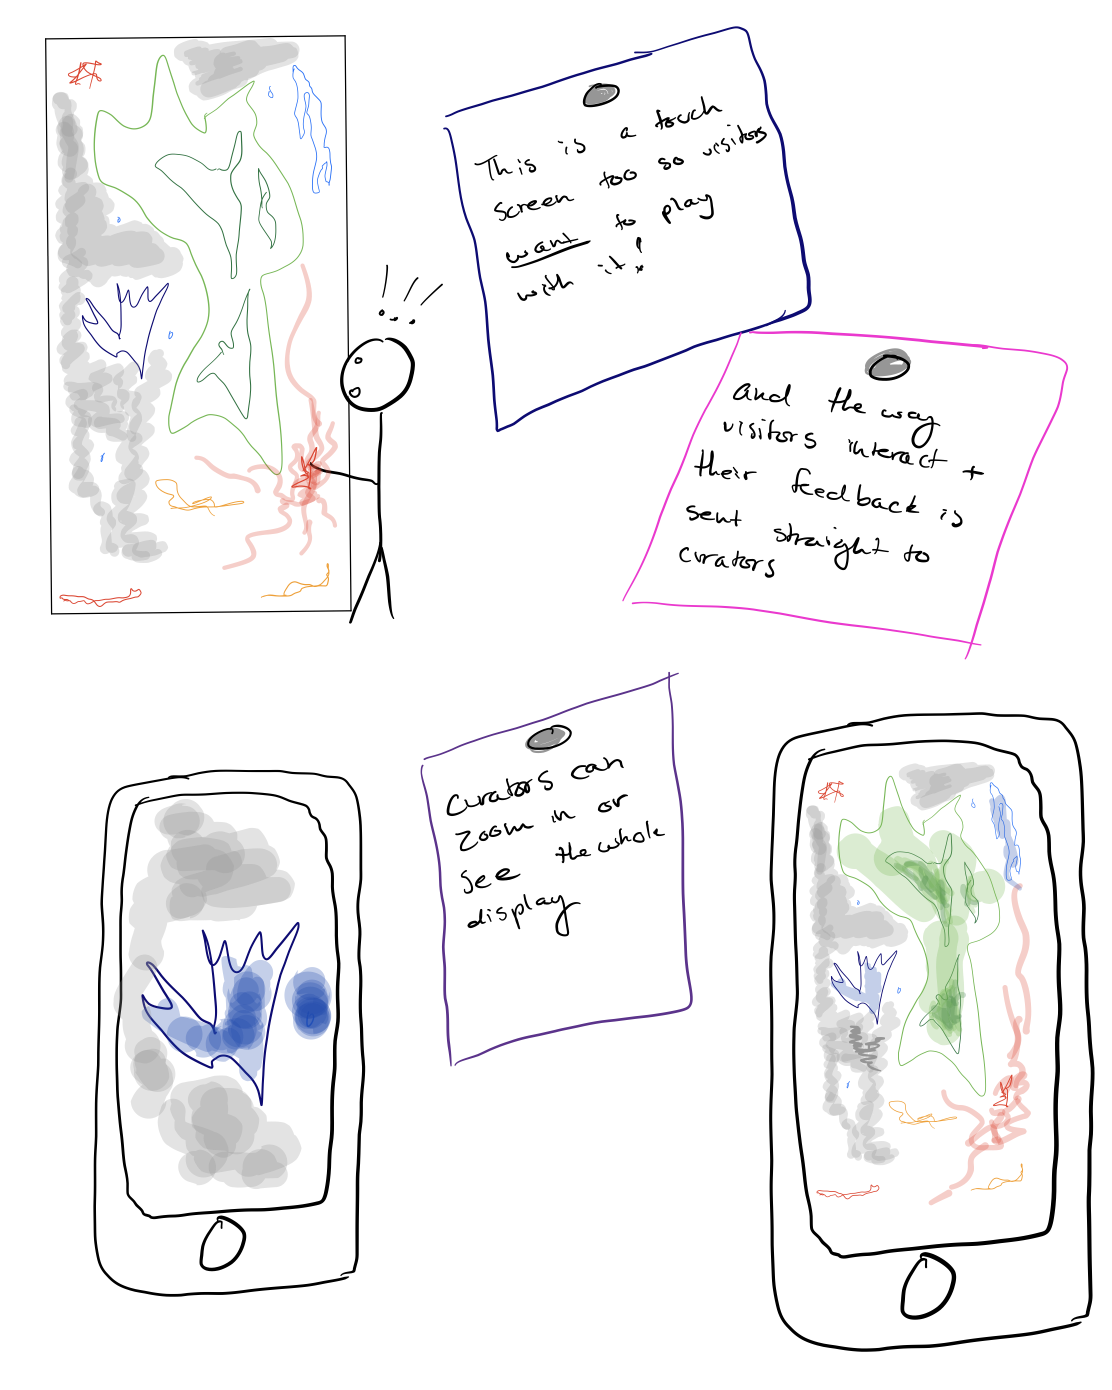 This is a touch
screen too so visitors
want to play
with it!
and the way
visitors interact +
their feedback is
sent straight to
curators
curators can
zoom in or
see the whole
display